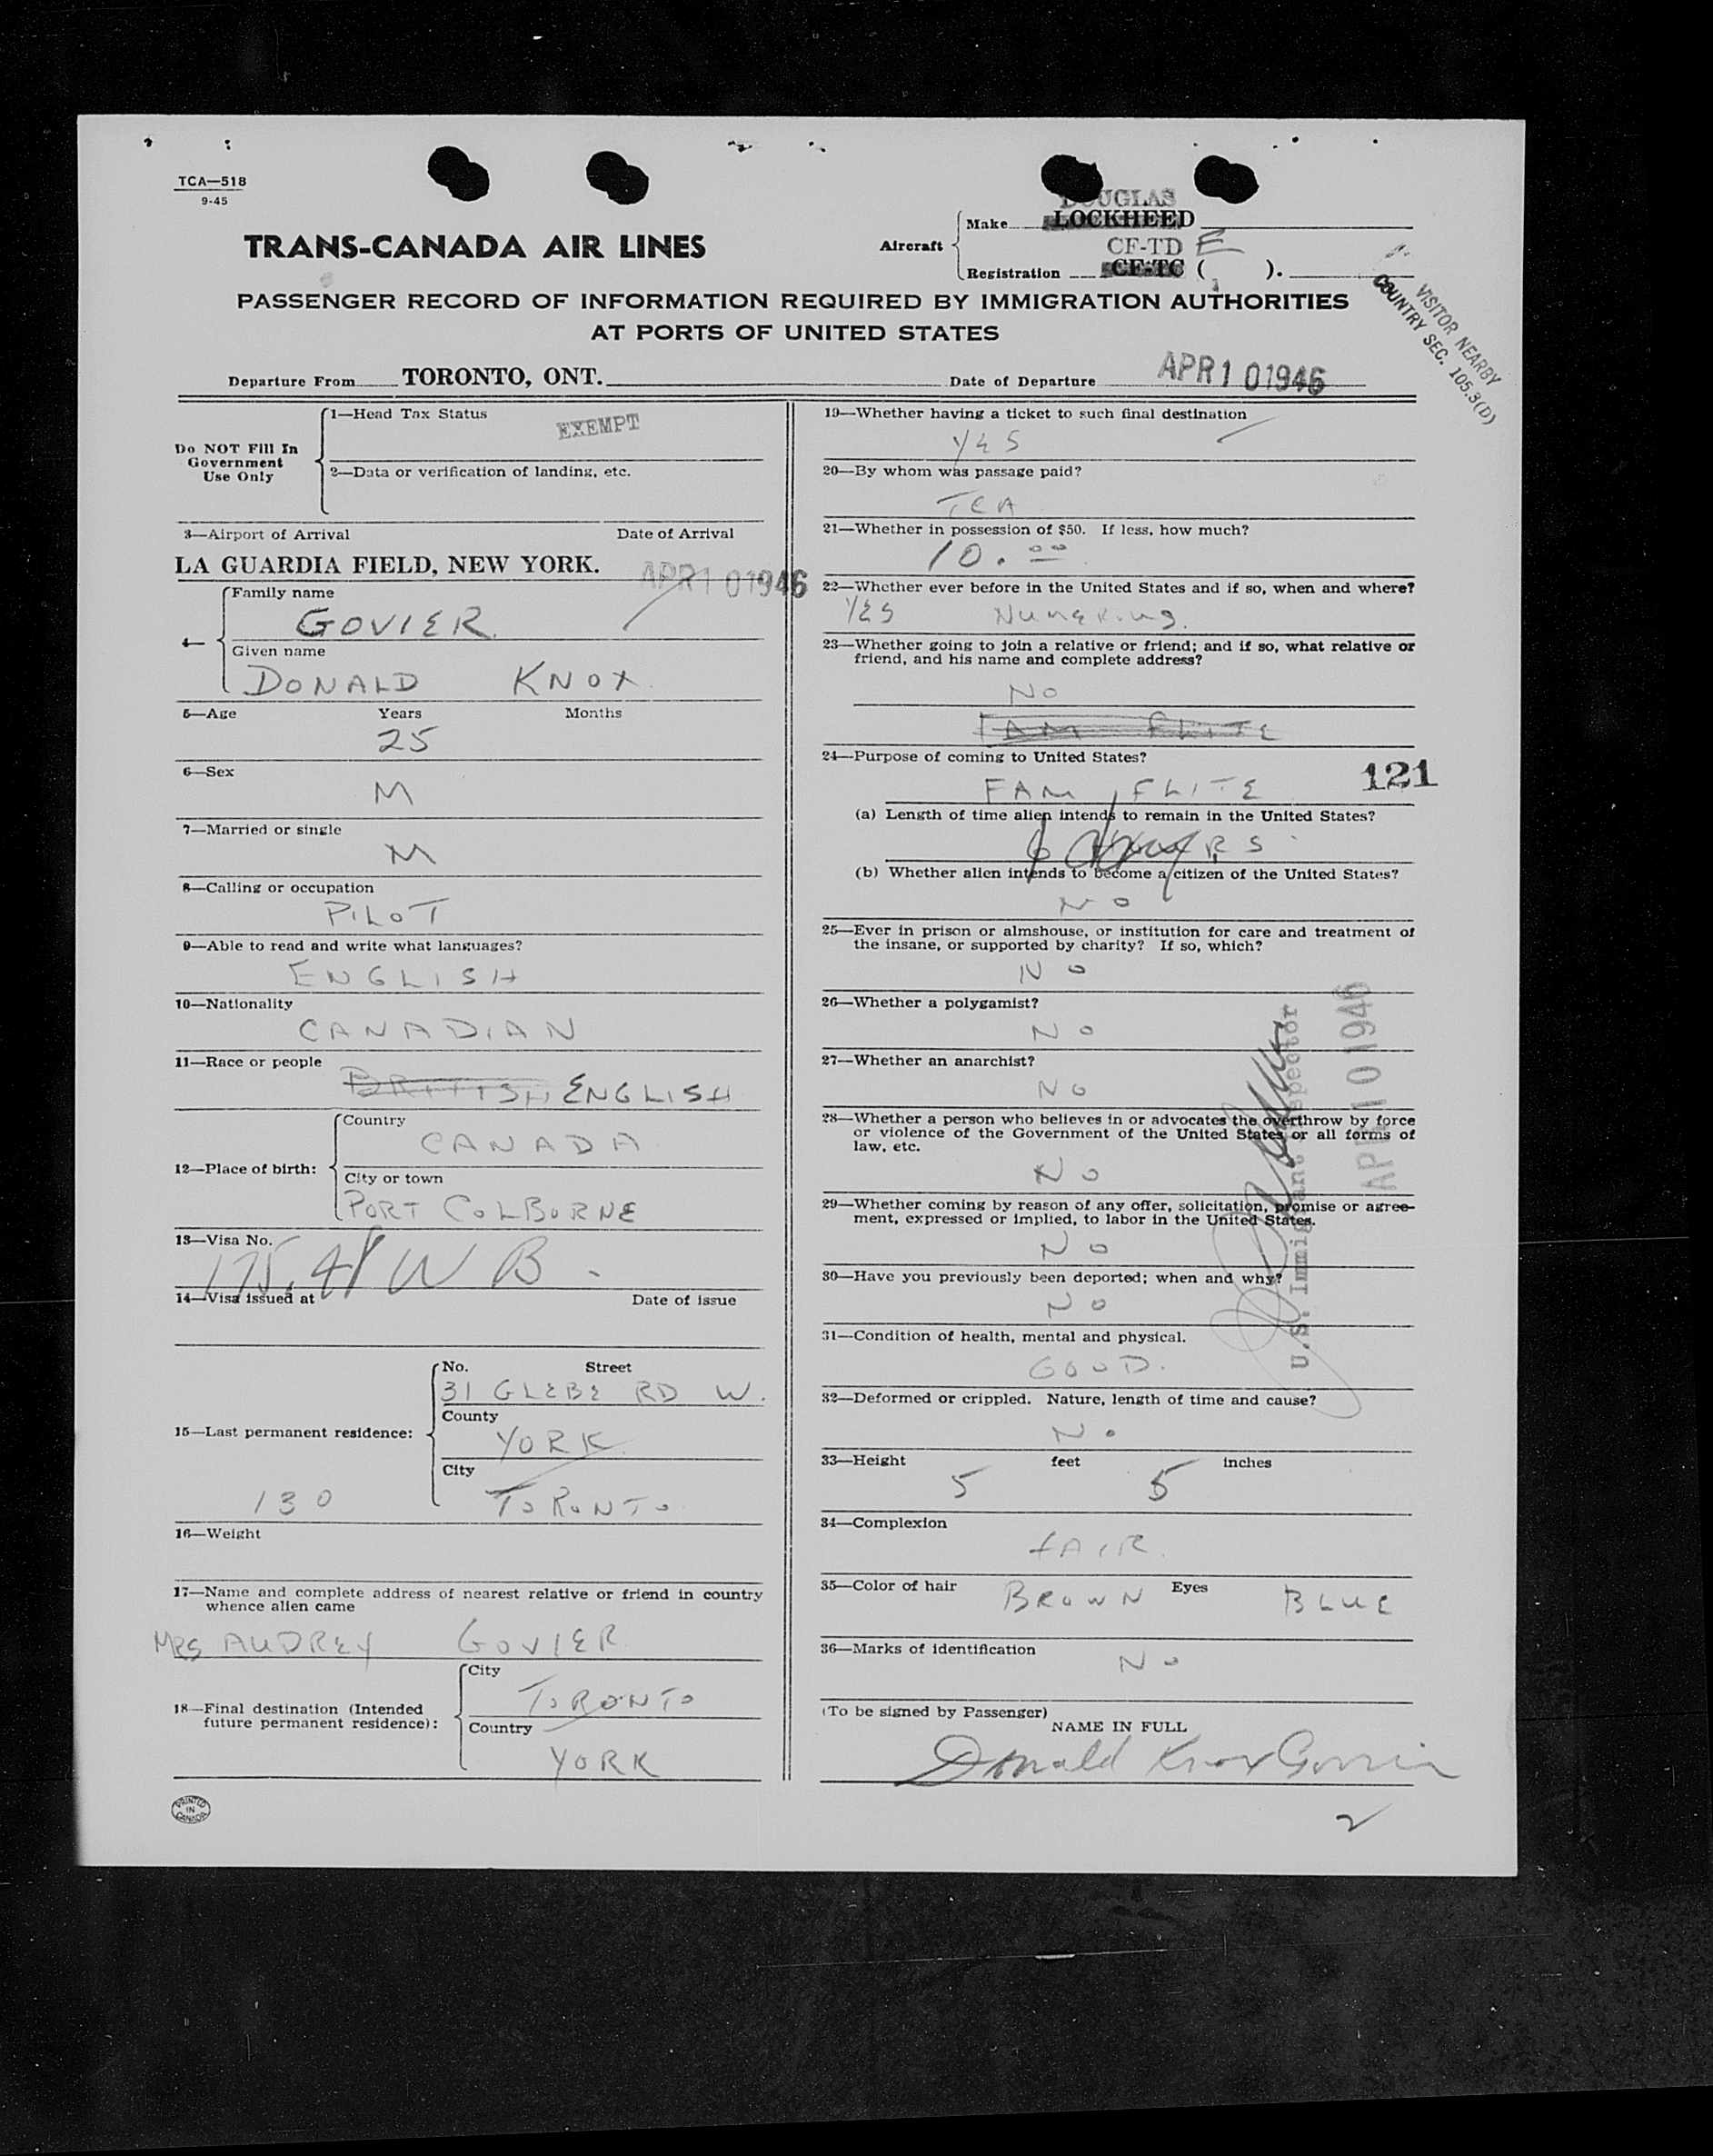 TCA—518
9-45
TRANS-CANADA AIR LINES
Aircraft
DOUGLAS
Make LOCKHEED
CF-TD E
Registration CF-TC ( ).
VISITOR NEARBY
COUNTRY SEC. 105.3(D)
PASSENGER RECORD OF INFORMATION REQUIRED BY IMMIGRATION AUTHORITIES
AT PORTS OF UNITED STATES
Departure From TORONTO, ONT. Date of Departure APR 10 1946
Do NOT Fill In
Government
Use Only
1—Head Tax Status
EXEMPT
2—Data or verification of landing, etc.
3—Airport of Arrival Date of Arrival
LA GUARDIA FIELD, NEW YORK. APR 10 1946
4—
Family name
GOVIER
Given name
DONALD KNOX
5—Age Years Months
25
6—Sex
M
7—Married or single
M
8—Calling or occupation
PILOT
9—Able to read and write what languages?
ENGLISH
10—Nationality
CANADIAN
11—Race or people
BRITISH ENGLISH
12—Place of birth:
Country
CANADA
City or town
PORT COLBORNE
13—Visa No.
175.41 W B
14—Visa issued at Date of issue
15—Last permanent residence:
No. Street
31 GLEBE RD W.
County
YORK
City
TORONTO
130
16—Weight
17—Name and complete address of nearest relative or friend in country
whence alien came
MRS AUDREY GOVIER
18—Final destination (Intended
future permanent residence):
City
TORONTO
Country
YORK
PRINTED
IN
CANADA
19—Whether having a ticket to such final destination
YES
20—By whom was passage paid?
TCA
21—Whether in possession of $50. If less, how much?
10.00
22—Whether ever before in the United States and if so, when and where?
YES
23—Whether going to join a relative or friend; and if so, what relative or
friend, and his name and complete address?
NO
FAM FLITE
24—Purpose of coming to United States?
121
FAM FLITE
(a) Length of time alien intends to remain in the United States?
(b) Whether alien intends to become a citizen of the United States?
NO
25—Ever in prison or almshouse, or institution for care and treatment of
the insane, or supported by charity? If so, which?
NO
26—Whether a polygamist?
NO
27—Whether an anarchist?
NO
28—Whether a person who believes in or advocates the overthrow by force
or violence of the Government of the United States or all forms of
law, etc.
NO
29—Whether coming by reason of any offer, solicitation, promise or agree-
ment, expressed or implied, to labor in the United States.
NO
30—Have you previously been deported; when and why?
NO
31—Condition of health, mental and physical.
GOOD.
32—Deformed or crippled. Nature, length of time and cause?
NO
33—Height feet inches
5 5
34—Complexion
FAIR.
35—Color of hair BROWN Eyes BLUE
36—Marks of identification
NO
U.S. Immigrant Inspector
APR 10 1946
(To be signed by Passenger)
NAME IN FULL
Donald Knox Govier
2